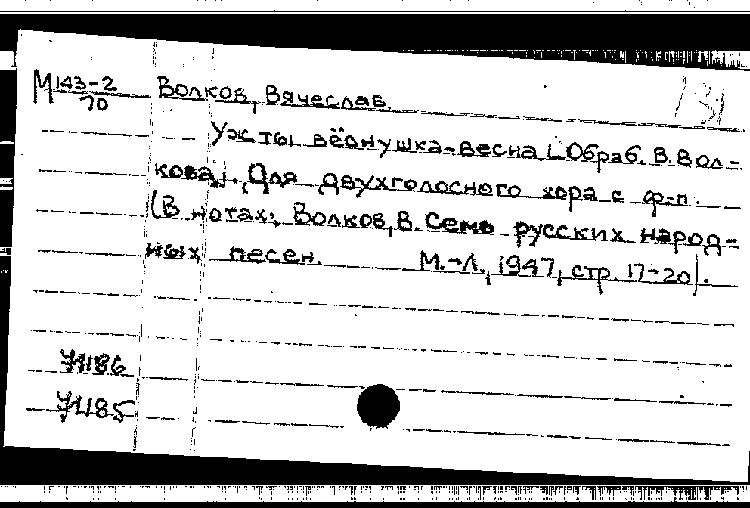 М143-2 Волков, Вячеслав. 131
70
Уж ты вёснушка-весна [Обраб. В. Вол-
кова]. Для двухголосного хора с ф-п.
(В нотах: Волков, В. Семь русских народ-
ных песен. М.-Л., 1947, стр. 17-20).